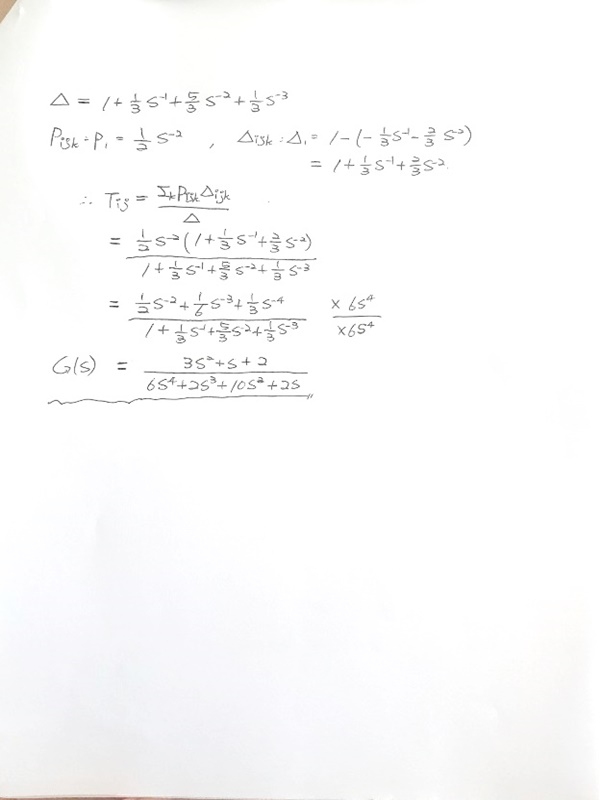 Δ = 1 + 1/3 S⁻¹ + 5/3 S⁻² + 1/3 S⁻³
Pijk = P₁ = 1/2 S⁻² , Δijk = Δ₁ = 1 - (-1/3 S⁻¹ - 2/3 S⁻²)
= 1 + 1/3 S⁻¹ + 2/3 S⁻²
∴ Tij = Σk Pijk Δijk / Δ
= 1/2 S⁻² (1 + 1/3 S⁻¹ + 2/3 S⁻²) / 1 + 1/3 S⁻¹ + 5/3 S⁻² + 1/3 S⁻³
= 1/2 S⁻² + 1/6 S⁻³ + 1/3 S⁻⁴ / 1 + 1/3 S⁻¹ + 5/3 S⁻² + 1/3 S⁻³ × 6S⁴ / × 6S⁴
G(S) = 3S² + S + 2 / 6S⁴ + 2S³ + 10S² + 2S